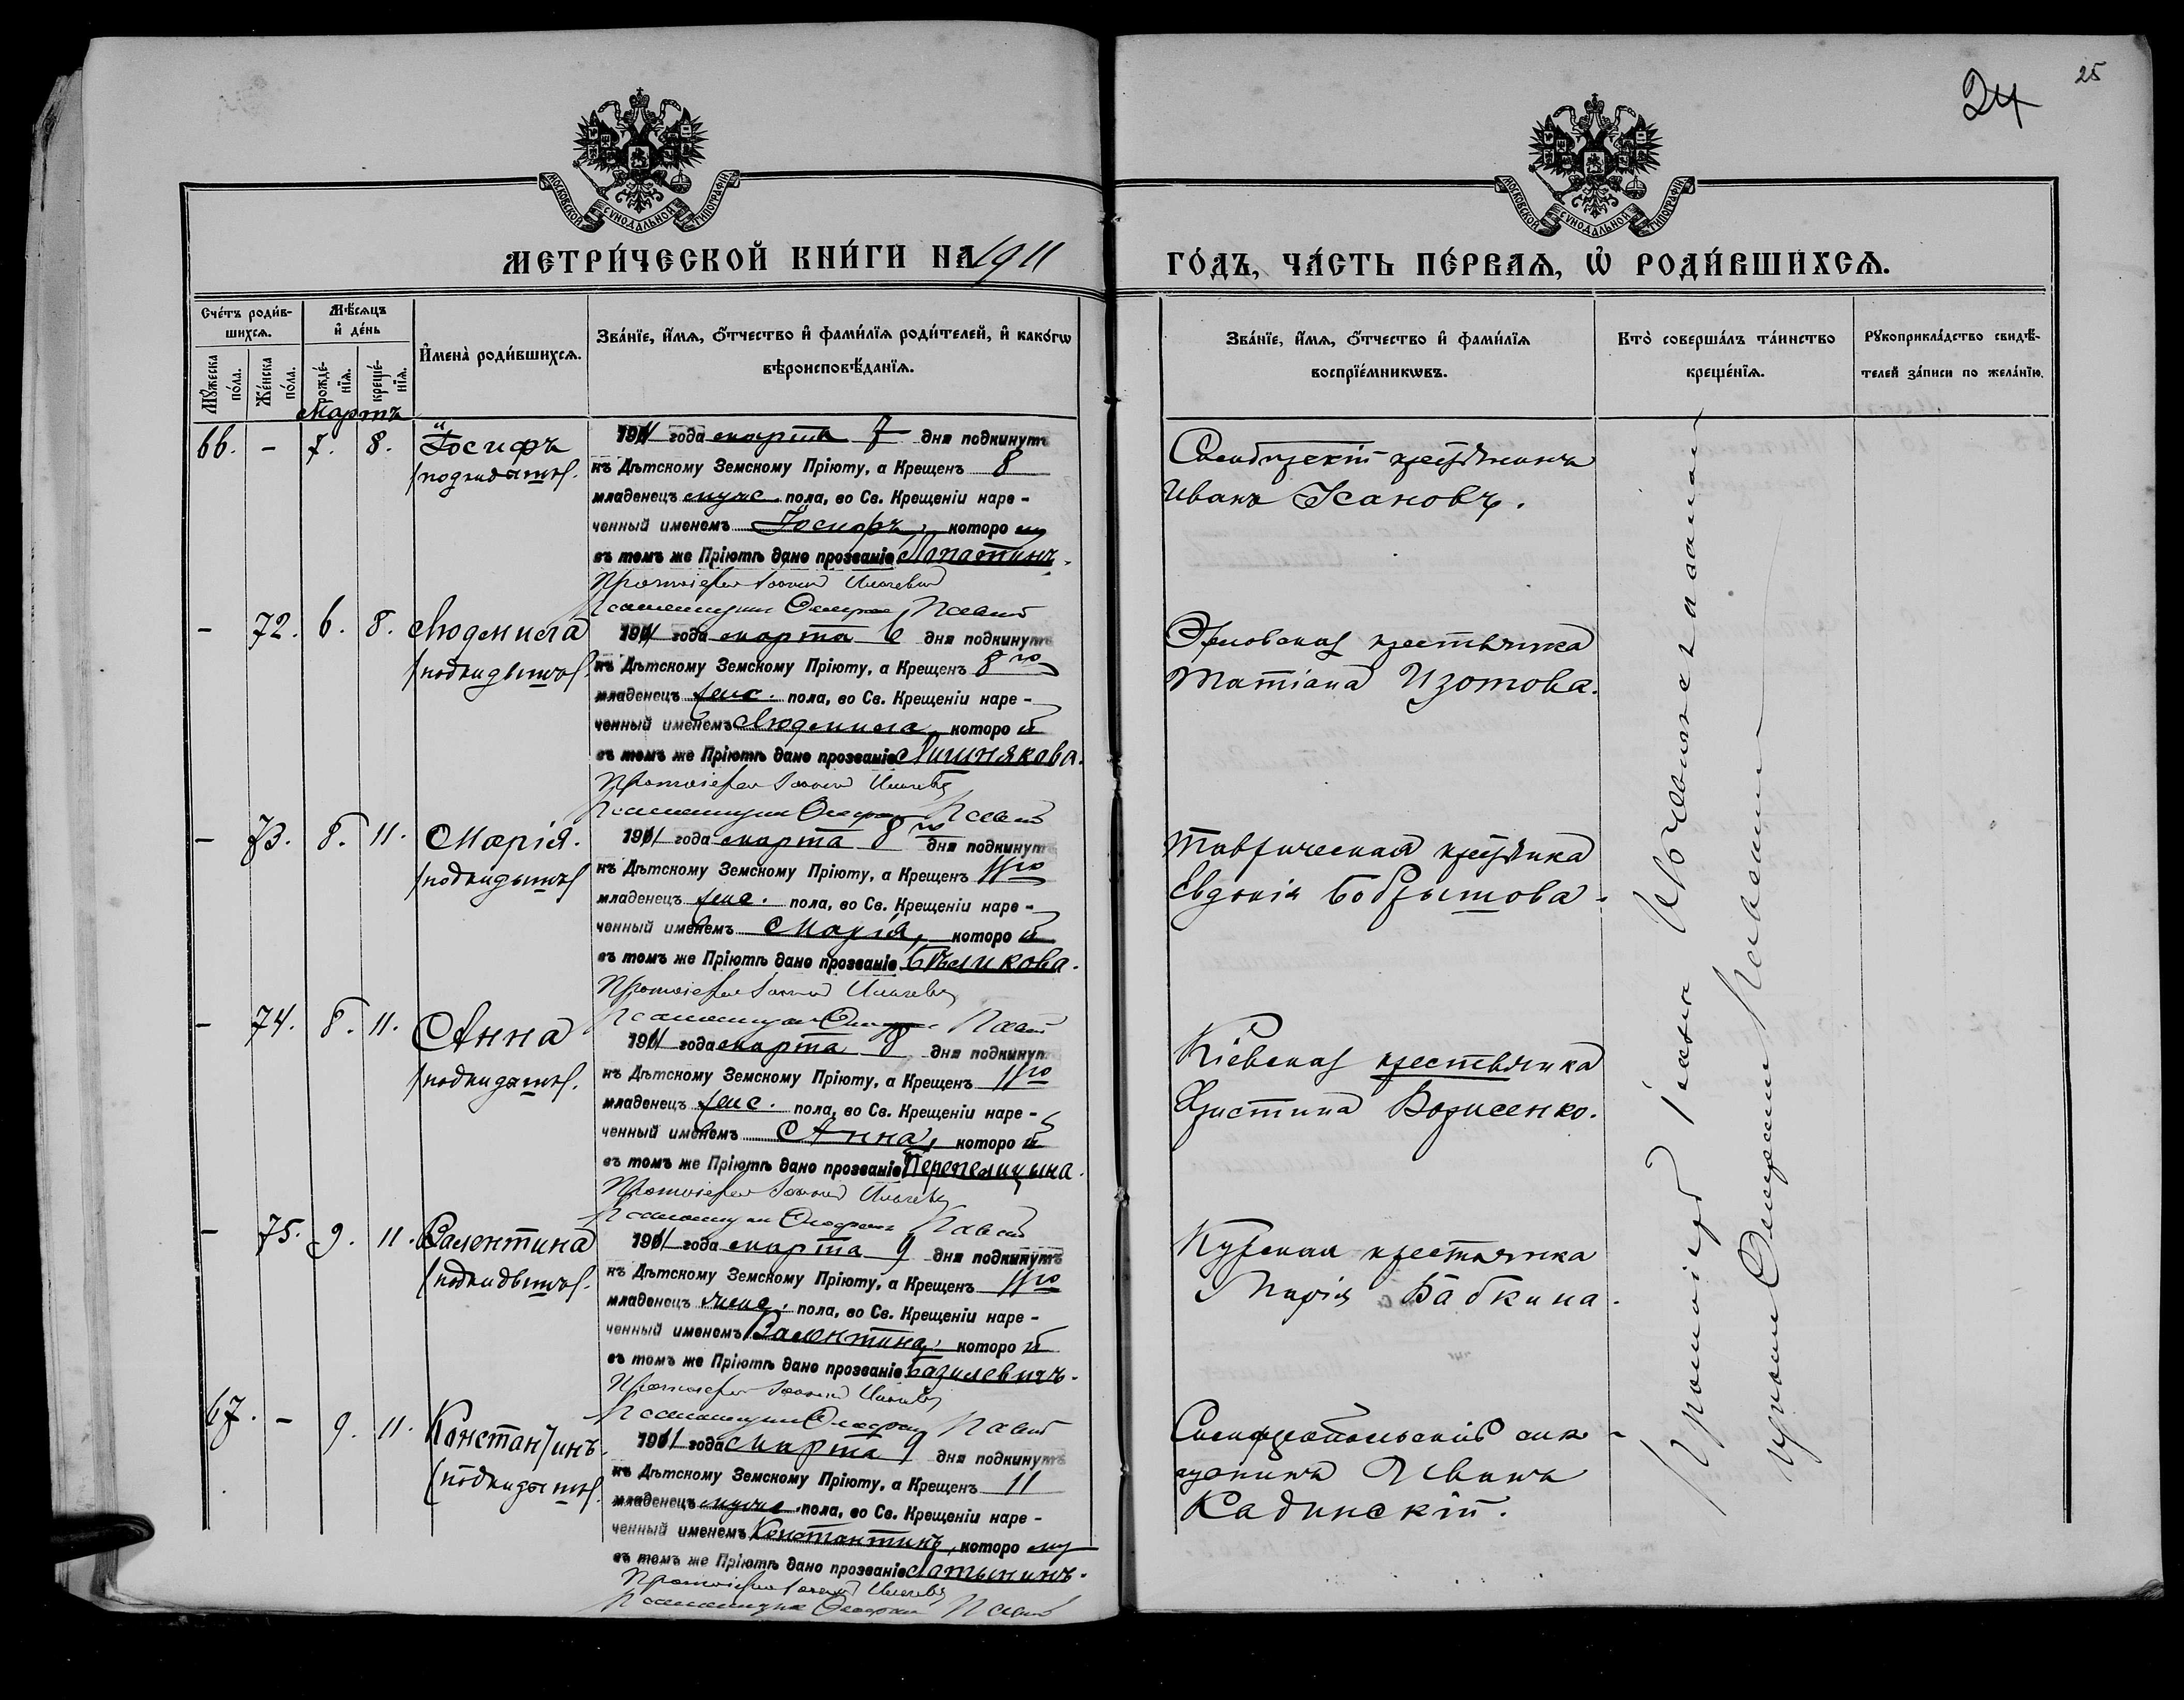 25
24
МОСКОВСКОЙ СѴНОДАЛЬНОЙ ТИПОГРАФІИ
МОСКОВСКОЙ СѴНОДАЛЬНОЙ ТИПОГРАФІИ
МЕТРИ́ЧЕСКОЙ КНИ́ГИ НА 1911
ГО́ДЪ, ЧА́СТЬ ПЕ́РВАѦ, Ѡ҆ РОДИ́ВШИХСѦ.
Сче́тъ роди́в-
шихсѧ.
Мꙋ́жеска по́ла.
Же́нска по́ла.
Мѣ́сѧцъ
и҆ де́нь
рожде́-
нїѧ.
креще́-
нїѧ.
И҆мена̀ роди́вшихсѧ.
Зва́нїе, и҆́мѧ, ѻ҆́тчество и҆ фами́лїѧ роди́телей, и҆ како́гѡ
вѣроисповѣ́данїѧ.
Зва́нїе, и҆́мѧ, ѻ҆́тчество и҆ фами́лїѧ
воспрїе́мникѡвъ.
Кто̀ соверша́лъ та́инство
креще́нїѧ.
Рꙋкоприкла́дство свидѣ́-
телей за́писи по жела́нїю.
Мартъ
66. - 7. 8. Іосифъ
(подкидышъ).
1911 года марта 7 дня подкинутъ
къ Дѣтскому Земскому Пріюту, а Крещенъ 8
младенецъ муж. пола, во Св. Крещеніи наре-
ченный именемъ Іосифъ, которому
въ томъ же Пріютѣ дано прозваніе Лопатинъ.
Протоіерей Іоаннъ
Псаломщикъ
крестьянинъ
Иванъ Исановъ.
- 72. 6. 8. Людмила
(подкидышъ).
1911 года марта 6 дня подкинутъ
къ Дѣтскому Земскому Пріюту, а Крещенъ 8го
младенецъ жен. пола, во Св. Крещеніи наре-
ченный именемъ Людмила, которой
въ томъ же Пріютѣ дано прозваніе Лишнякова.
Протоіерей Іоаннъ
Псаломщикъ
Орловская крестьянка
Татіана Изотова.
- 73. 8. 11. Марія.
(подкидышъ)
1911 года марта 8го дня подкинутъ
къ Дѣтскому Земскому Пріюту, а Крещенъ 11го
младенецъ жен. пола, во Св. Крещеніи наре-
ченный именемъ Марія, которой
въ томъ же Пріютѣ дано прозваніе Бѣликова.
Протоіерей Іоаннъ
Псаломщикъ
Таврическая крестьянка
Евдокія Бобрышова.
- 74. 8. 11. Анна
(подкидышъ).
1911 года марта 8 дня подкинутъ
къ Дѣтскому Земскому Пріюту, а Крещенъ 11го
младенецъ жен. пола, во Св. Крещеніи наре-
ченный именемъ Анна, которой
въ томъ же Пріютѣ дано прозваніе Перепелицына.
Протоіерей Іоаннъ
Псаломщикъ
Кіевская крестьянка
Христина Борисенко.
- 75. 9. 11. Валентина
(подкидышъ).
1911 года марта 9 дня подкинутъ
къ Дѣтскому Земскому Пріюту, а Крещенъ 11го
младенецъ жен. пола, во Св. Крещеніи наре-
ченный именемъ Валентина, которой
въ томъ же Пріютѣ дано прозваніе Базилевичъ.
Протоіерей Іоаннъ
Псаломщикъ
Курская крестьянка
Марія Бабкина.
67. - 9. 11. Константинъ.
(подкидышъ).
1911 года марта 9 дня подкинутъ
къ Дѣтскому Земскому Пріюту, а Крещенъ 11
младенецъ муж. пола, во Св. Крещеніи наре-
ченный именемъ Константинъ, которому
въ томъ же Пріютѣ дано прозваніе Латынинъ.
Протоіерей Іоаннъ
Псаломщикъ
Симферопольскій мѣ-
щанинъ Иванъ
Кадинскій.
Протоіерей Іоаннъ